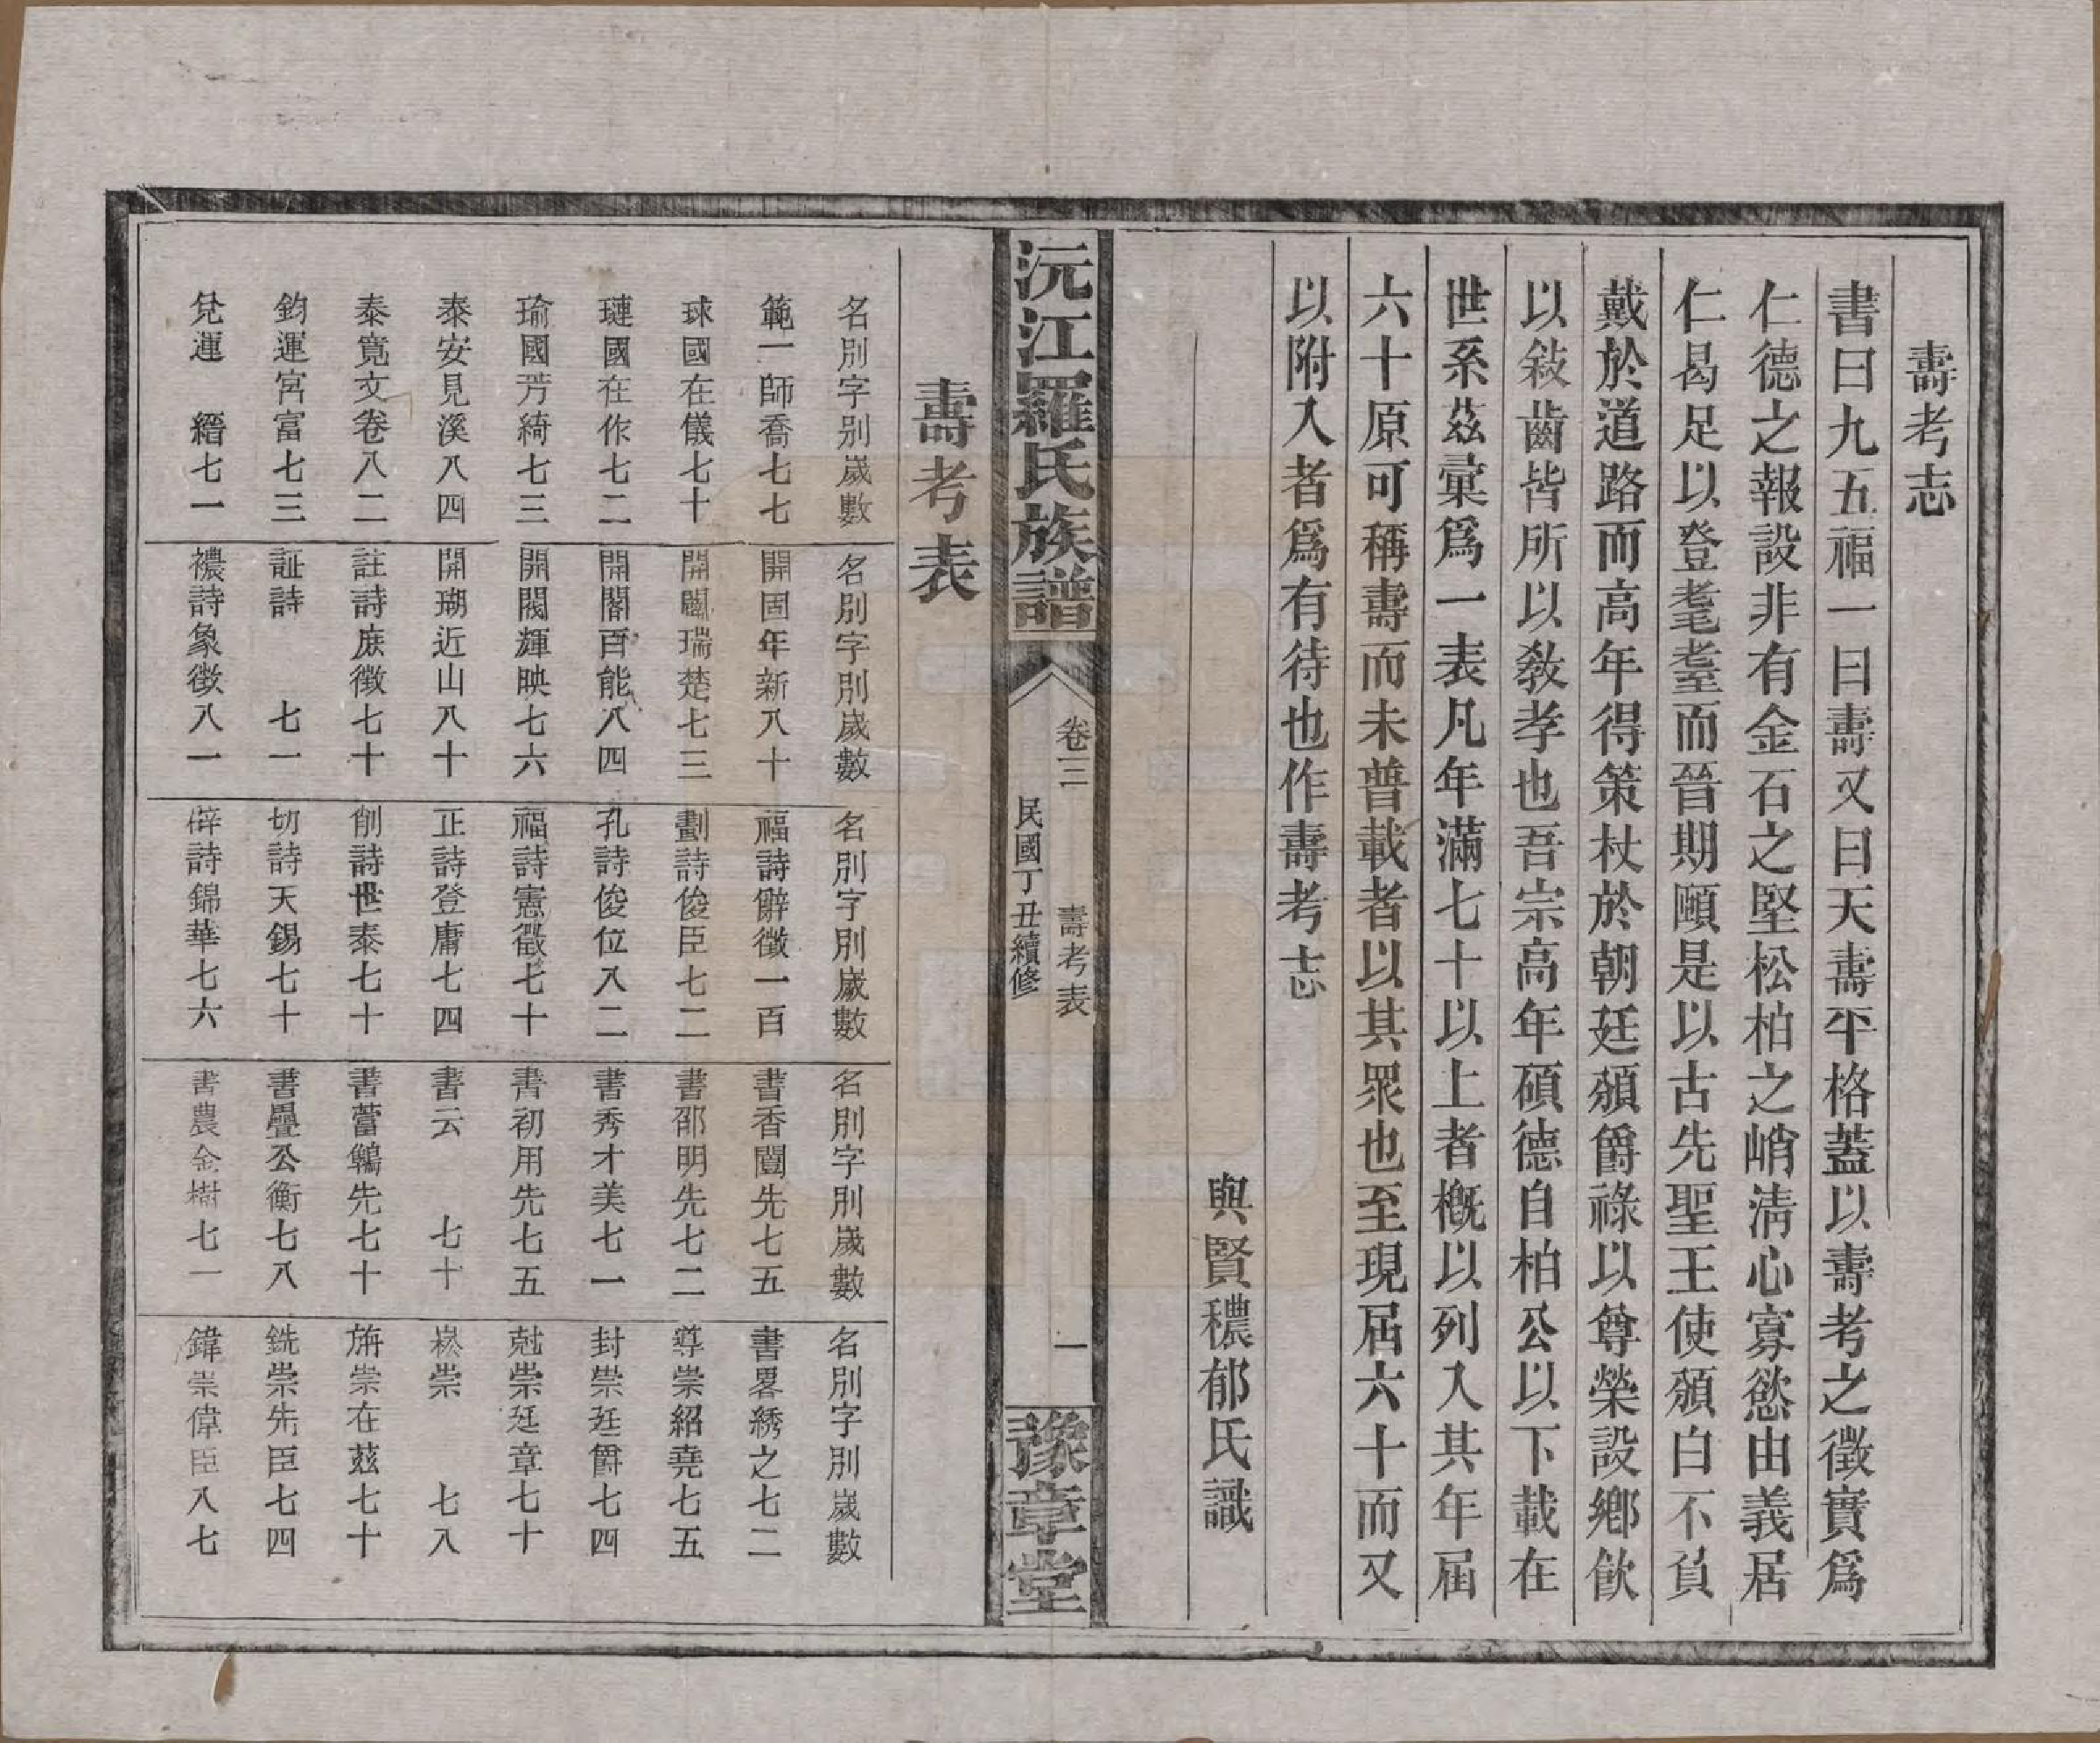 壽考志
書曰九五福一曰壽又曰天壽平格蓋以壽考之徵實爲
仁德之報設非有金石之堅松柏之峭淸心寡慾由義居
仁曷足以登耄耋而晉期頤是以古先聖王使頒白不負
戴於道路而高年得策杖於朝廷頒爵祿以尊榮設鄉飮
以敍齒皆所以敎孝也吾宗高年碩德自柏公以下載在
世系茲彙爲一表凡年滿七十以上者槪以列入其年屆
六十原可稱壽而未普載者以其眾也至現居六十而又
以附入者爲有待也作壽考志
與賢穠郁氏識
沅江羅氏族譜
卷三
壽考表
民國丁丑續修
一
豫章堂
壽考表
名別字別歲數
範一師喬七七
球國在儀七十
璉國在作七二
瑜國芳綺七三
泰安見溪八四
泰寬文卷八二
鈞運宮富七三
兌運 縉七一
名別字別歲數
開固年新八十
開闖瑞楚七三
開闍百能八四
開閥輝映七六
開瑚近山八十
註詩庶徵七十
証詩 七一
禯詩象徵八一
名別字別歲數
福詩辦徵一百
劃詩俊臣七二
孔詩俊位八二
福詩憲徵七十
正詩登庸七四
削詩世泰七十
切詩天錫七十
辟詩錦華七六
名別字別歲數
書香闓先七五
書郁明先七二
書秀才美七一
書初用先七五
書云 七十
書蕾鵷先七十
書疊公衡七八
書農金樹七一
名別字別歲數
書畧綉之七二
導崇紹堯七五
封崇廷爵七四
尅崇廷章七十
崧崇 七八
旃崇在茲七十
銑崇先臣七四
鍏崇偉臣八七